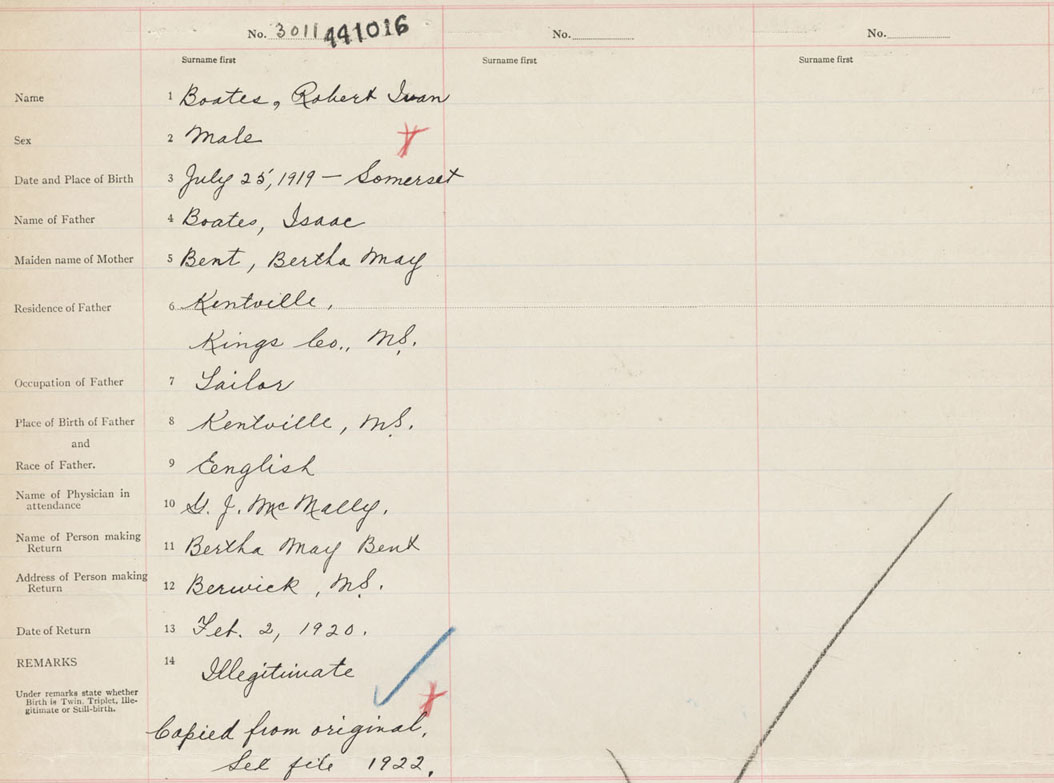 No. 3011 441016 No. No.
Surname first Surname first Surname first
Name 1 Boates, Robert Ivan
Sex 2 Male
Date and Place of Birth 3 July 25, 1919 — Somerset
Name of Father 4 Boates, Isaac
Maiden name of Mother 5 Bent, Bertha May
Residence of Father 6 Kentville,
Kings Co., N.S.
Occupation of Father 7 Tailor
Place of Birth of Father 8 Kentville, N.S.
and
Race of Father. 9 English
Name of Physician in
attendance 10 G. J. McNally.
Name of Person making
Return 11 Bertha May Bent
Address of Person making
Return 12 Berwick, N.S.
Date of Return 13 Feb. 2, 1920.
REMARKS 14 Illegitimate
Under remarks state whether
Birth is Twin, Triplet, Ille-
gitimate or Still-birth.
Copied from original.
See file 1922.